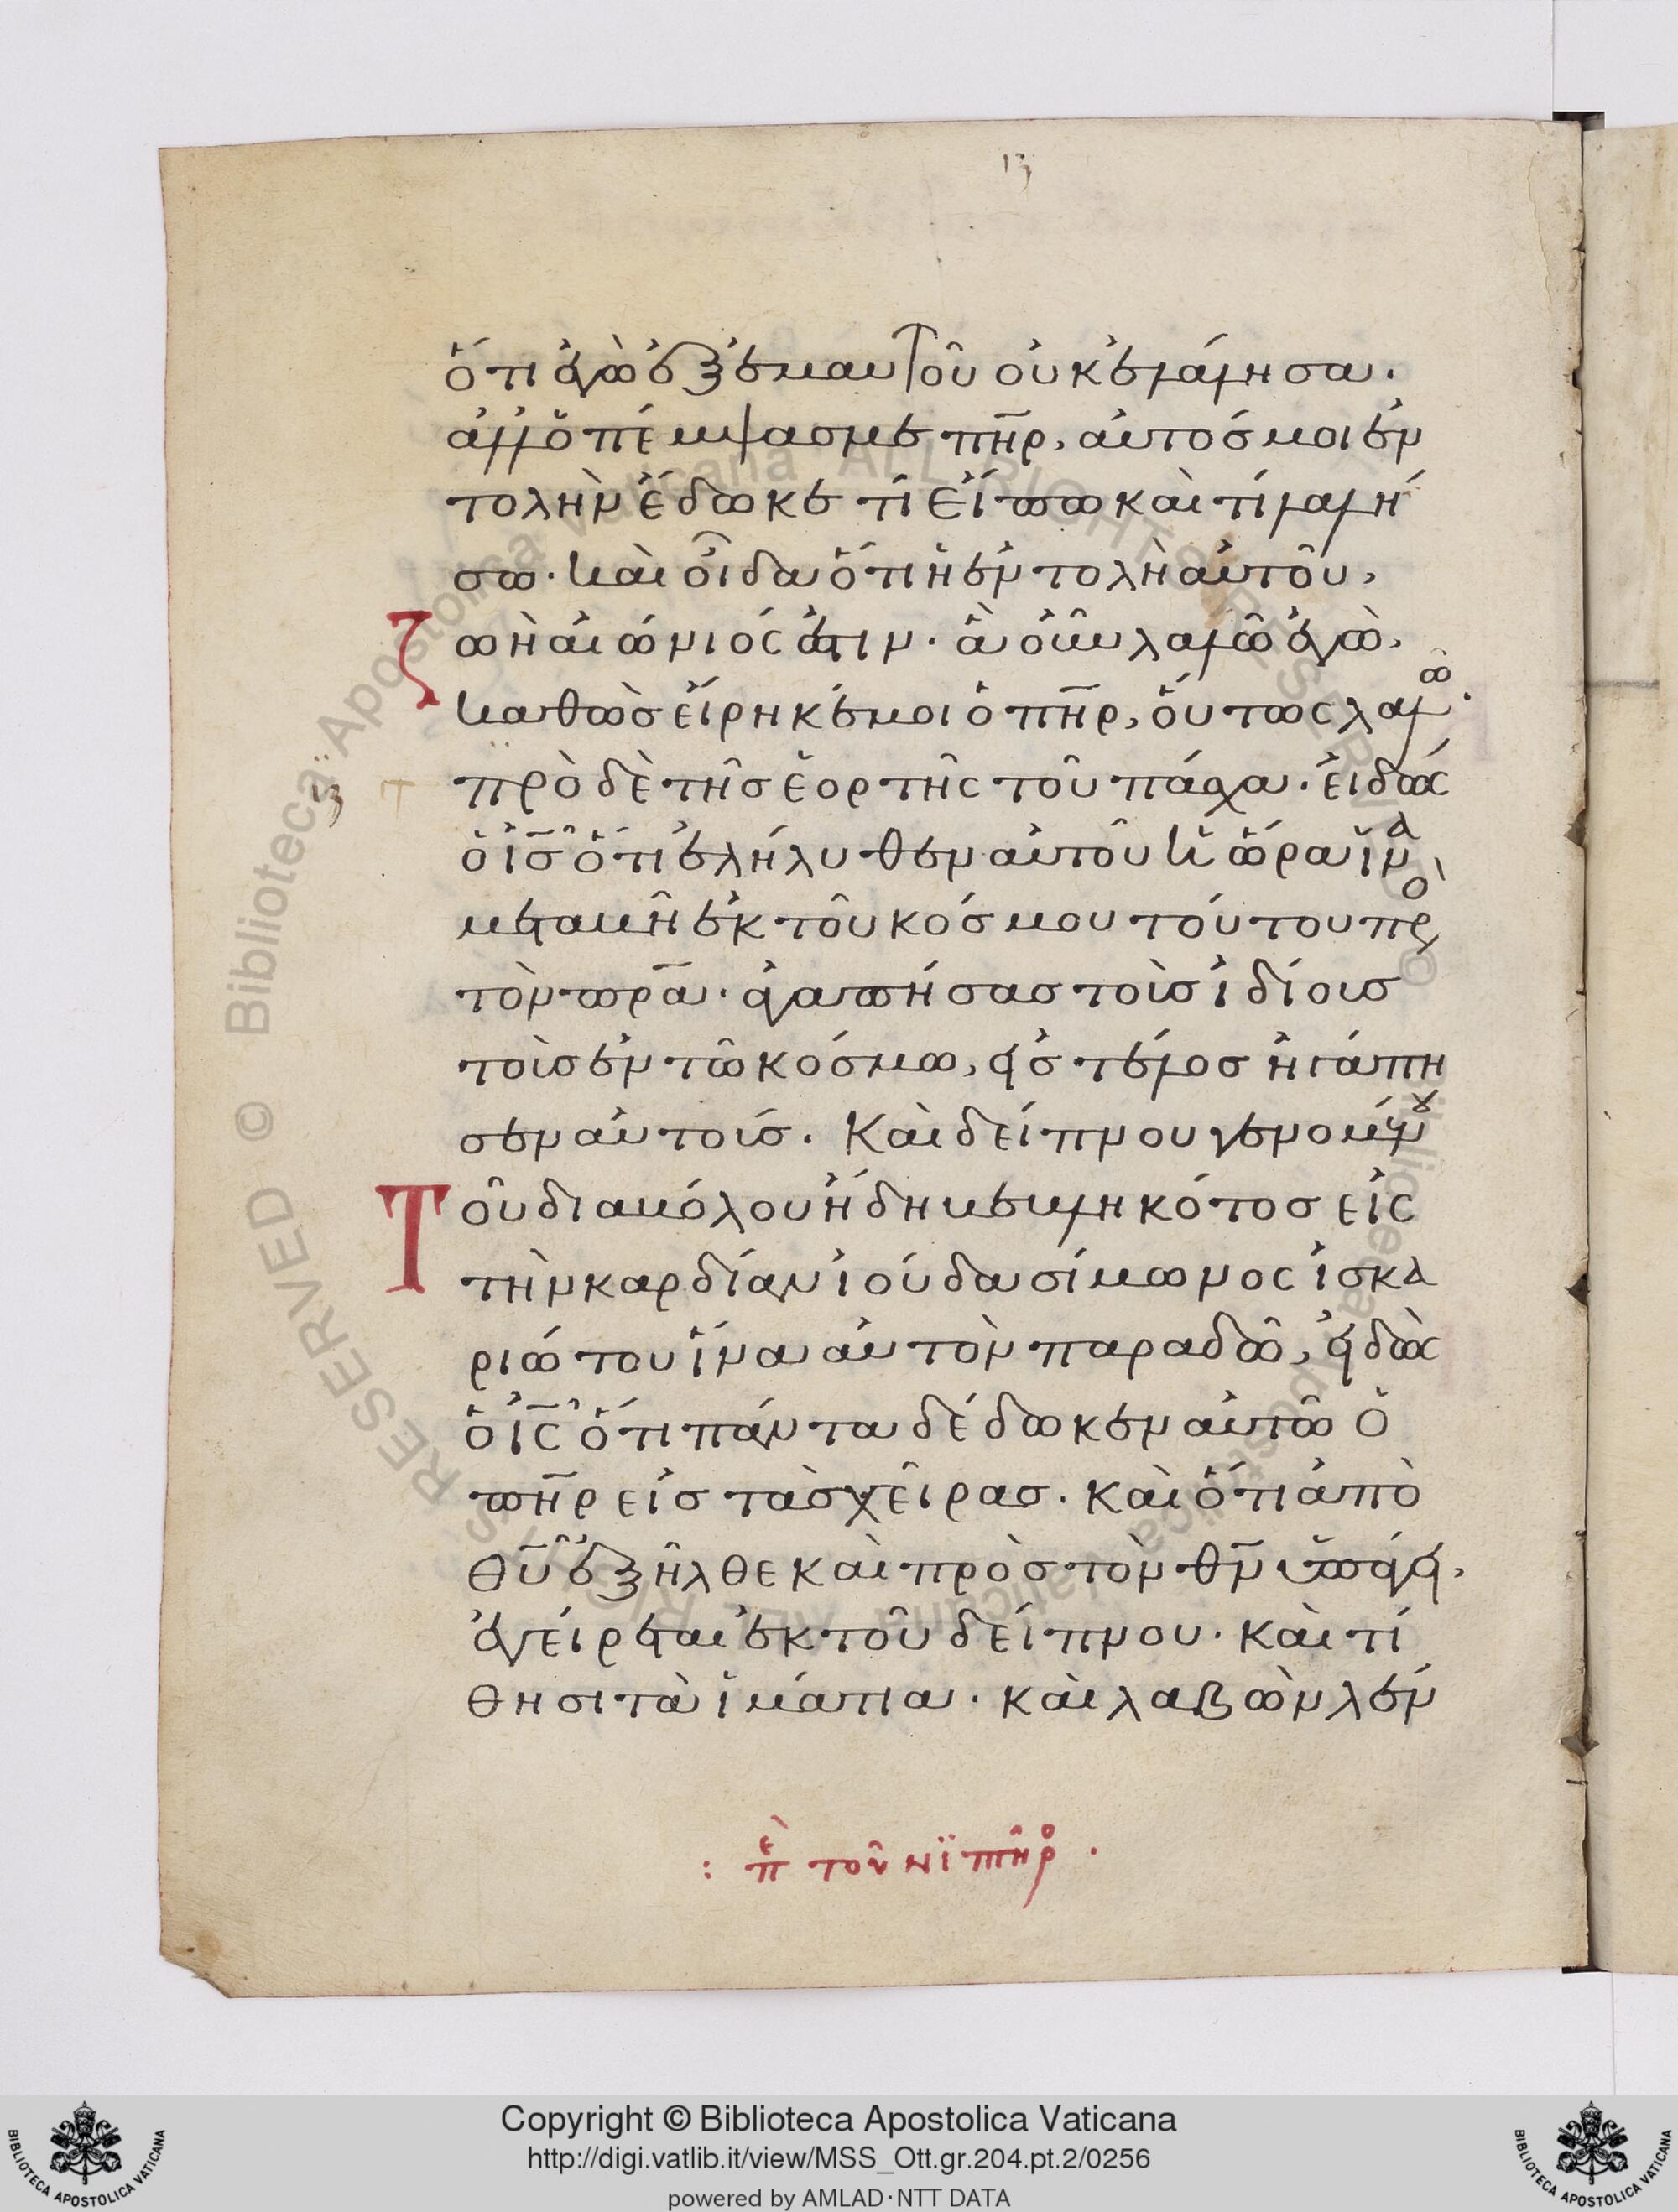 13
ὅτι ἐγὼ ἐξ ἐμαυτοῦ οὐκ ἐλάλησα.
ἀλλ ὁ πέμψασ με πη̅ρ, αὐτόσ μοι ἐν
τολὴν ἔδωκε τί εἴπω καὶ τί λαλή
σω. καὶ οἶδα ὅτι ἡ ἐντολὴ αὐτοῦ,
ζωὴ αἰώνιός ἐστιν. ἃ οὖν λαλῶ ἐγὼ,
καθὼσ εἴρηκέ μοι ὁ πη̅ρ, οὕτως λαλῶ.
13 τ πρὸ δὲ τῆσ ἑορτῆς τοῦ πάσχα. εἰδὼς
ὁ ι̅σ ὅτι ἐλήλυθεν αὐτοῦ ἡ ὥρα ἵνα
μεταβῆ ἐκ τοῦ κόσμου τούτου πρὸ
τὸν πρ̅α. ἀγαπήσασ τοὺσ ἰδίουσ
τοὺσ ἐν τῶ κόσμω, εἰσ τέλοσ ἠγάπη
σεν αὐτούσ. Καὶ δείπνου γενομένου
Τοῦ διαβόλου ἤδη βεβληκότοσ εἰς
τὴν καρδίαν ἰούδα σίμωνος ἰσκα
ριώτου ἵνα αὐτὸν παραδῶ, εἰδὼς
ὁ ι̅ς ὅτι πάντα δέδωκεν αὐτῶ ὁ
πη̅ρ εἰσ τὰσ χεῖρασ. καὶ ὅτι ἀπὸ
θυ̅ ἐξῆλθε καὶ πρὸσ τὸν θν̅ ὑπάγει,
ἐγείρεται ἐκ τοῦ δείπνου. καὶ τί
θησι τὰ ἱμάτια. καὶ λαβὼν λέν
: ἐπὶ τοῦ νιπτῆρο .
© Biblioteca Apostolica Vaticana ALL RIGHTS RESERVED
BIBLIOTECA APOSTOLICA VATICANA
Copyright © Biblioteca Apostolica Vaticana
http://digi.vatlib.it/view/MSS_Ott.gr.204.pt.2/0256
powered by AMLAD·NTT DATA
BIBLIOTECA APOSTOLICA VATICANA